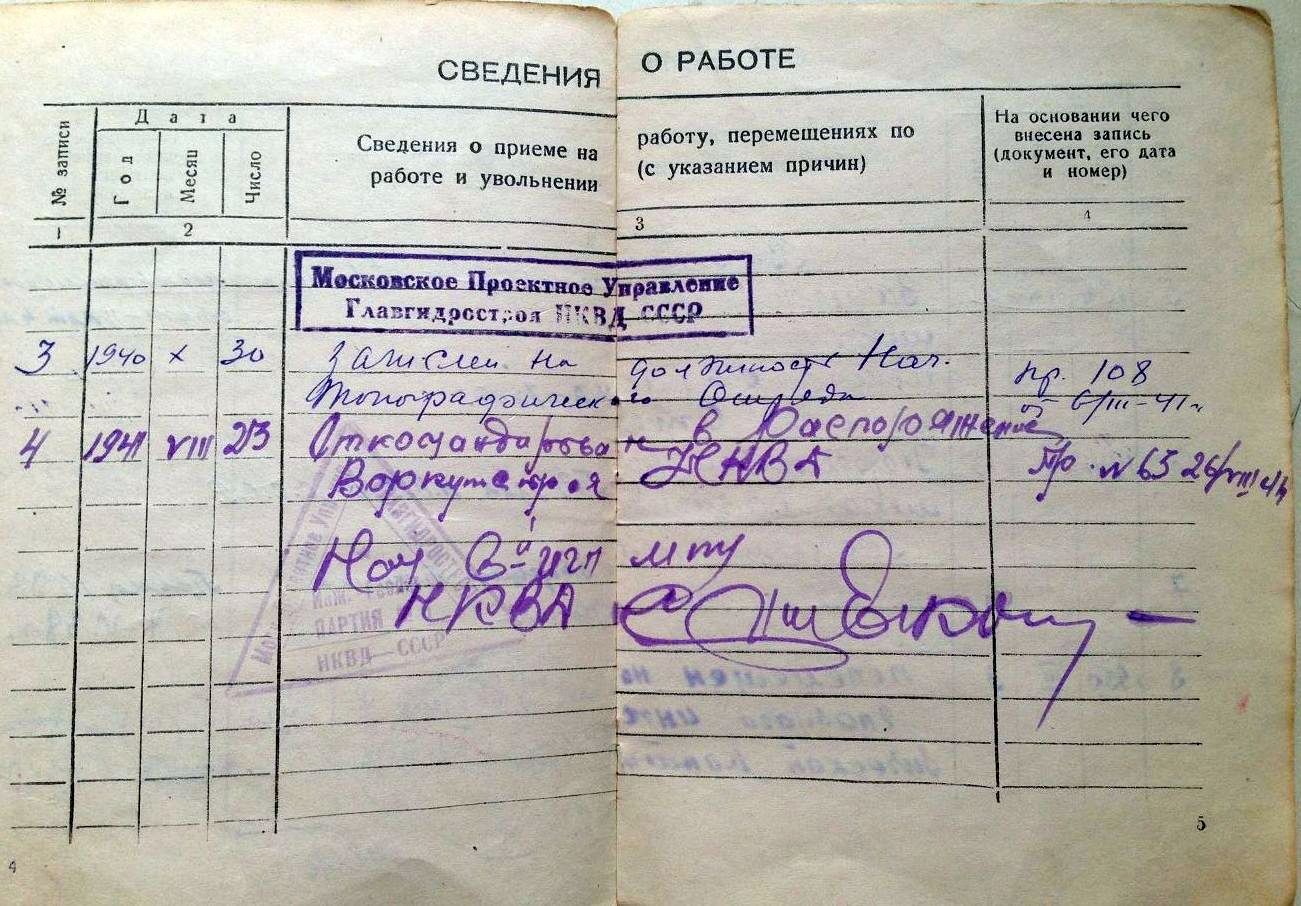 СВЕДЕНИЯ О РАБОТЕ
№ записи
Дата
Год
Месяц
Число
Сведения о приеме на работу, перемещениях по
работе и увольнении (с указанием причин)
На основании чего
внесена запись
(документ, его дата
и номер)
1 2 3 4
Московское Проектное Управление
Главгидростроя НКВД СССР
3 1940 X 30 Зачислен на должность Нач.
Топографического Отряда
пр. 108
от 6/III-41г
4 1941 VIII 23 Откомандирован в Распоряжение
Воркутстроя НКВД
Пр. N 63 26/VIII 41
Нач 6-й ИГП МПУ
НКВД
ПАРТИЯ
НКВД СССР
4
5